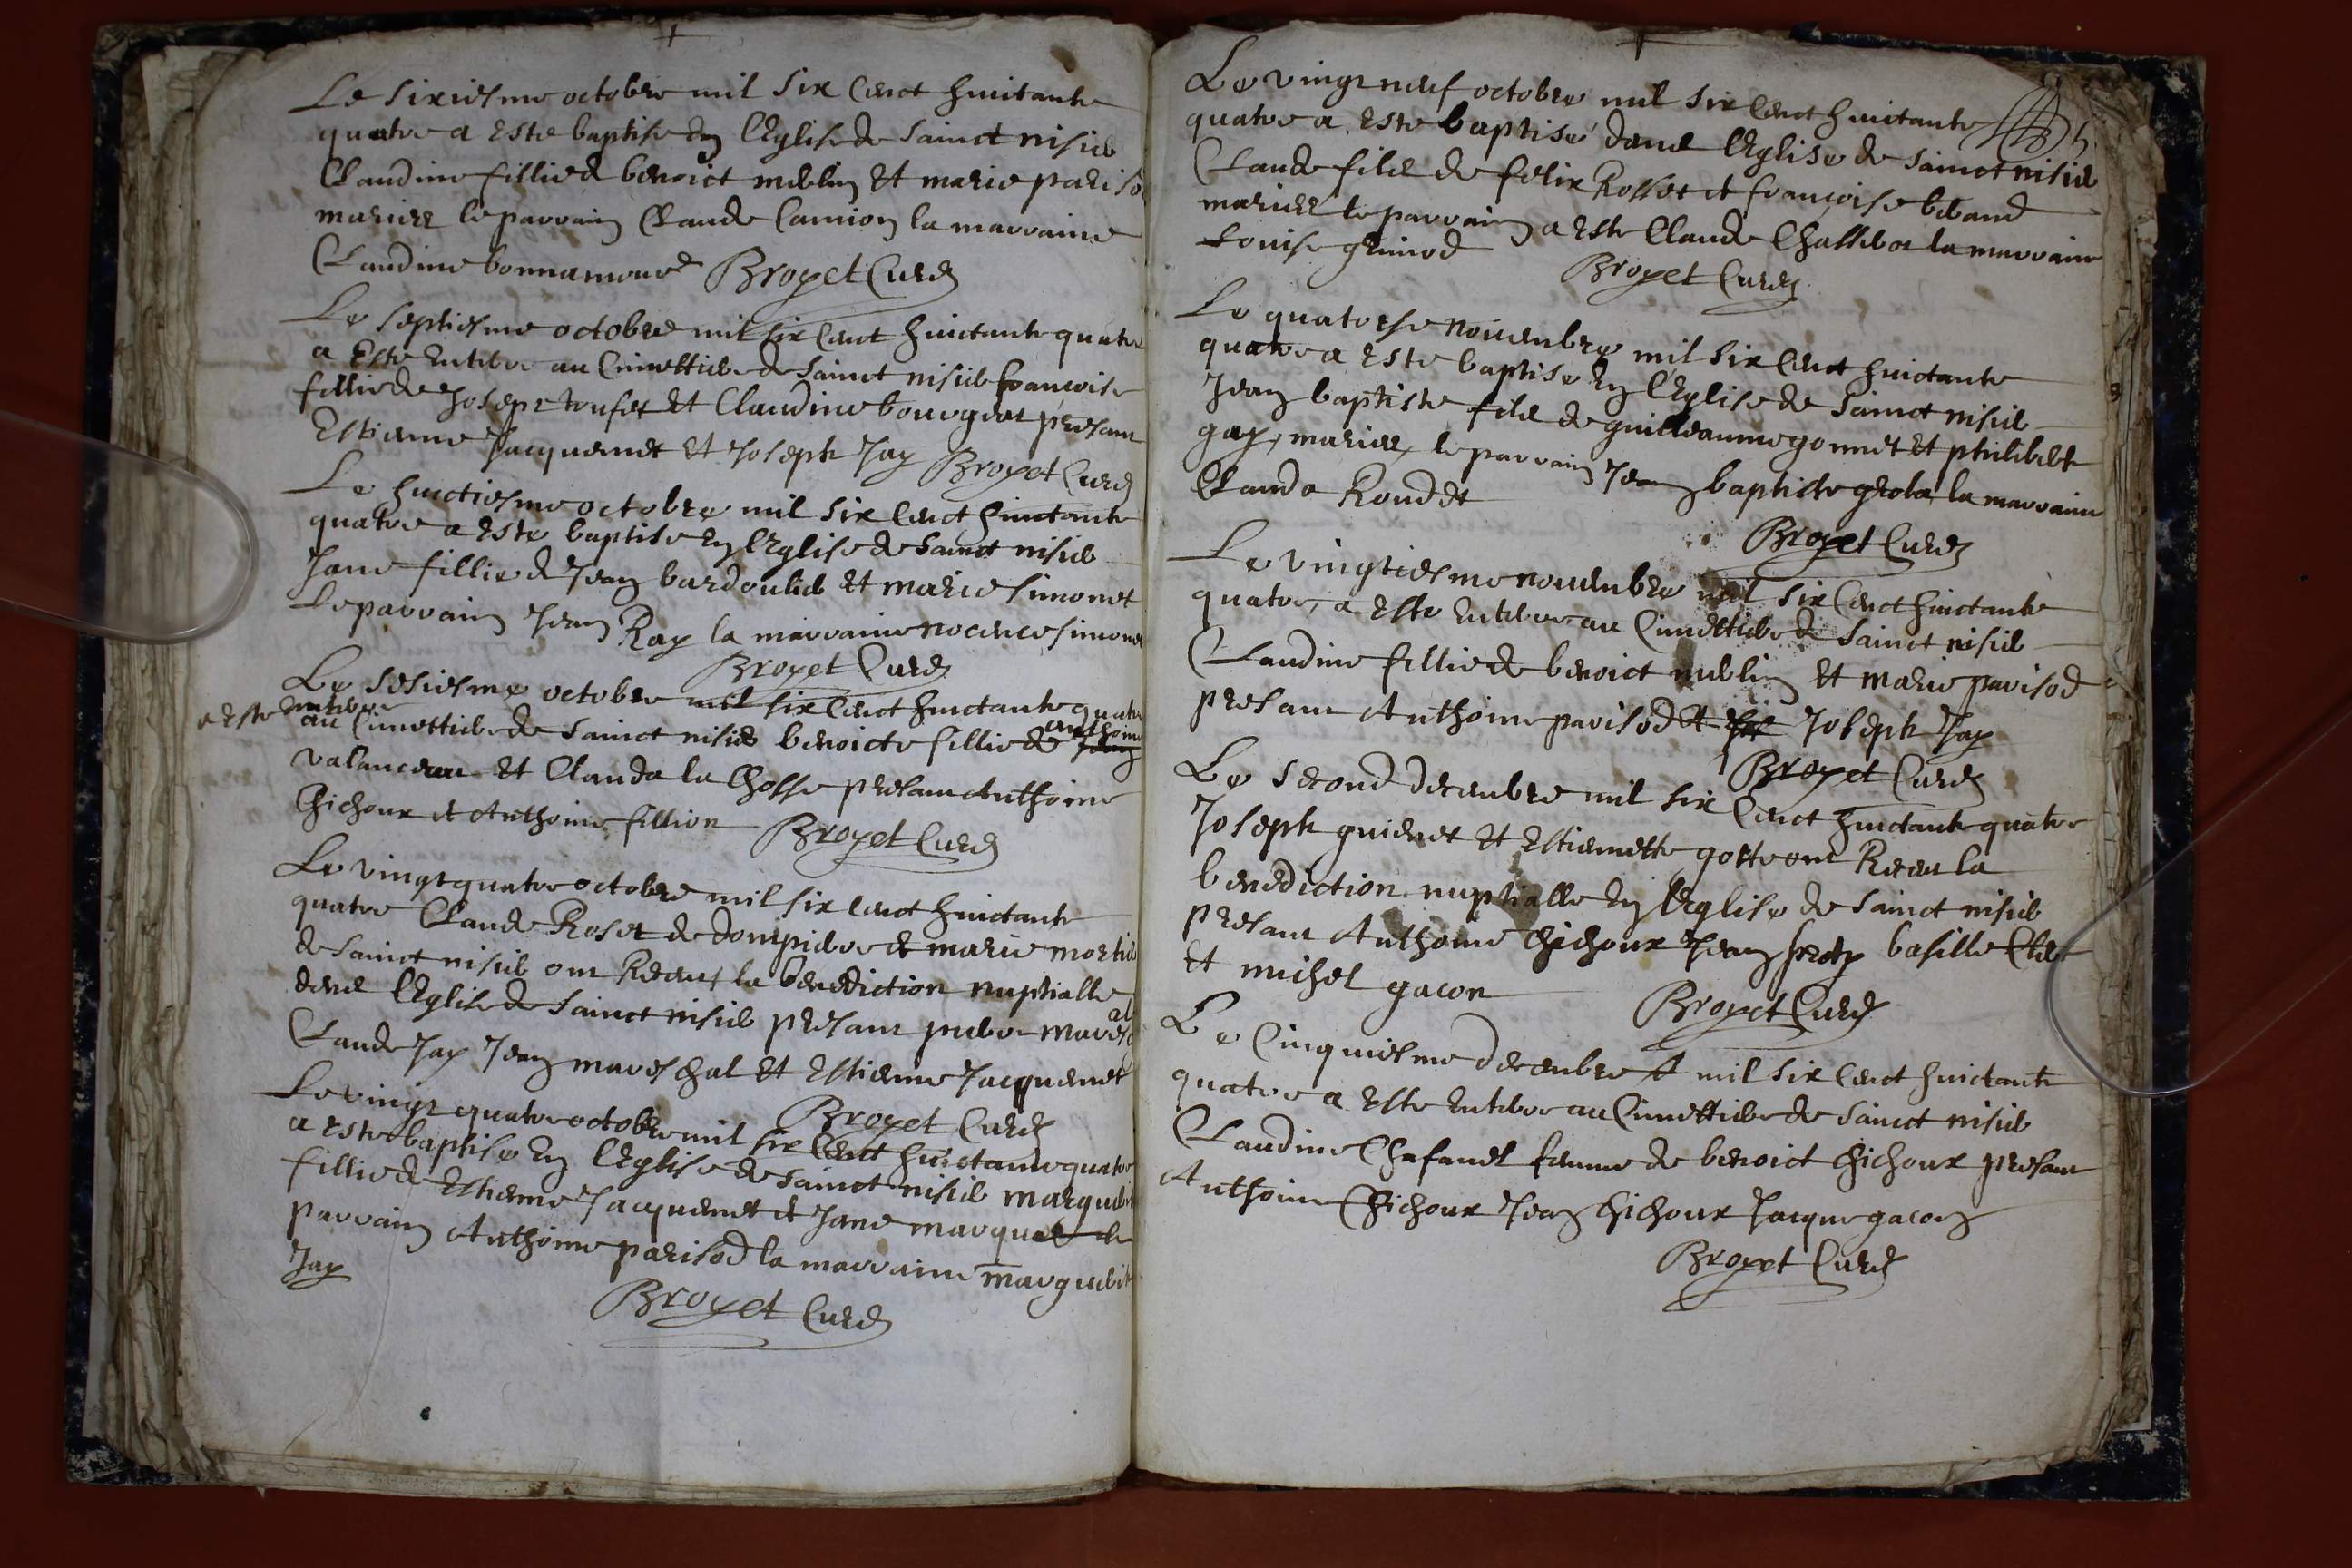 Le sixiesme octobre mil six cent huictante
quatre a este baptise en l'Eglise de sainct nisier
Claudine fillie de benoict merlin et marie pariso
mariez le parrain Claude Camion la marraine
Claudine bonnamour Broyet Curé
Le septiesme octobre mil six cent huictante quatre
a este enterre au Cimettiere de sainct nisier francoise
fillie de Joseph toufet et Claudine bourgeot presant
Estienne Jacquemet et Joseph Jay Broyet Curé
Le huictiesme octobre mil six cent huictante
quatre a este baptise en l'Eglise de sainct nisier
Jane fillie de Jean bardoulier et marie simonet
Le parrain Jean Ray la marraine nocence simonet
Broyet Curé
Le sesiesme octobre mil six cent huictante quatre
a este enterre au Cimettiere de sainct nisier benoicte fillie de anthoine
valanceau et Clauda la Chosse presant Anthoine
Chichoux et Anthoine fillion Broyet Curé
Le vingt quatre octobre mil six cent huictante
quatre Claude Roset de dompierre et marie mortier
de sainct nisier ont Receu la benediction nuptialle
dens l'Eglise de sainct nisier presant pierre maresal
Claude Jay Jean mareschal et Estienne Jacquemet
Broyet Curé
Le vingt quatre octobre mil six cent huictante quatre
a este baptise en l'Eglise de sainct nisier marguerite
fillie de Estienne Jacquemet et Jane marquet le
parrain Anthoine parisod la marraine marguerite
Jay
Broyet Curé
Le vingt neuf octobre mil six cent huictante
quatre a este baptisé dens l'Eglise de sainct nisier
Claude fils de felix Rosset et françoise beraud
mariez le parrain a este Claude Chassebot la marraine
Louise grimod
Broyet Curé
Le quatorse novembre mil six cent huictante
quatre a este baptise en l'Eglise de sainct nisier
Jean baptiste fils de guilleaume gonnet et philiberte
gay, mariez, le parrain Jean baptiste grobat la marraine
Clauda Roudet
Broyet Curé
Le vingtiesme novembre mil six cent huictante
quatre, a este enterre au Cimettiere de sainct nisier
Claudine fillie de benoict merlin et marie parisod
presant Anthoine parisod et Joseph Jay
Broyet Curé
Le second decembre mil six cent huictante quatre
Joseph guienet et Estiennette gotte ont Receu la
benediction nuptialle en l'Eglise de sainct nisier
presant Anthoine Chichoux Jean basille
et michel gacon
Broyet Curé
Le Cinquiesme decembre mil six cent huictante
quatre a este enterre au Cimettiere de sainct nisier
Claudine Chafanel femme de benoict Chichoux presant
Anthoine Chichoux Jean Chichoux Jacque gacon
Broyet Curé